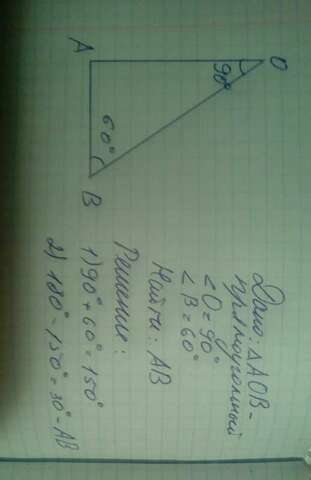 A
O
90°
60°
B
Дано: ΔAOB -
прямоугольный
∠O = 90°
∠B = 60°
Найти: AB
Решение:
1) 90° + 60° = 150°
2) 180° - 150° = 30° - AB